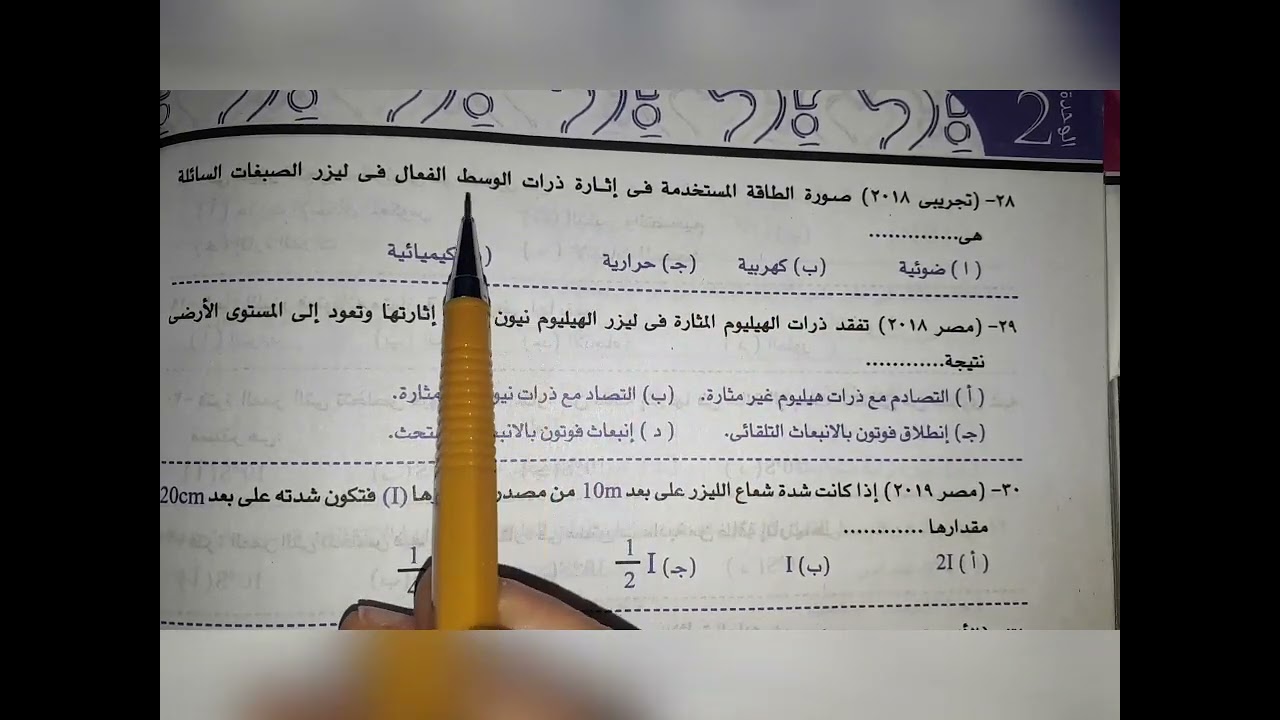 الوحدة
2
٢٨- (تجريبى ٢٠١٨) صورة الطاقة المستخدمة فى إثارة ذرات الوسط الفعال فى ليزر الصبغات السائلة
هى..............
( ا ) ضوئية (ب) كهربية (جـ) حرارية كيميائية
٢٩- (مصر ٢٠١٨) تفقد ذرات الهيليوم المثارة فى ليزر الهيليوم نيون إثارتها وتعود إلى المستوى الأرضى
نتيجة............
( أ ) التصادم مع ذرات هيليوم غير مثارة. (ب) التصاد مع ذرات مثارة.
(جـ) إنطلاق فوتون بالانبعاث التلقائى. ( د ) إنبعاث فوتون
٣٠- (مصر ٢٠١٩) إذا كانت شدة شعاع الليزر على بعد 10m من (I) فتكون شدته على بعد 20cm
مقدارها ............
( أ ) 2I (ب) I (جـ) 1/2 I